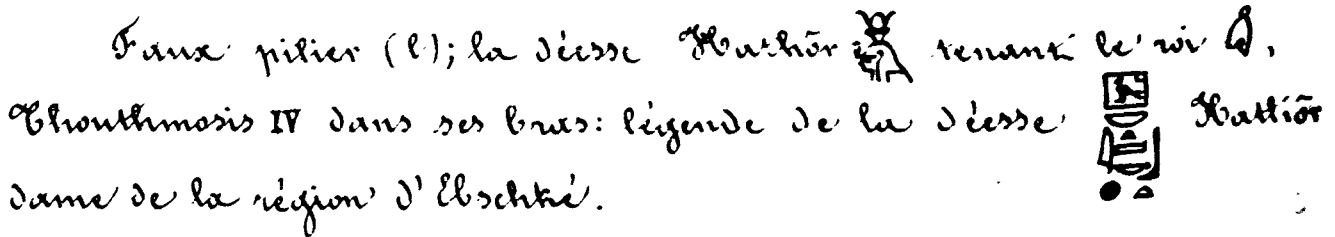 Faux pilier (l); la déesse Hathôr tenant le roi
Thouthmosis IV dans ses bras: légende de la déesse Hathôr
dame de la région d'Ebschké.